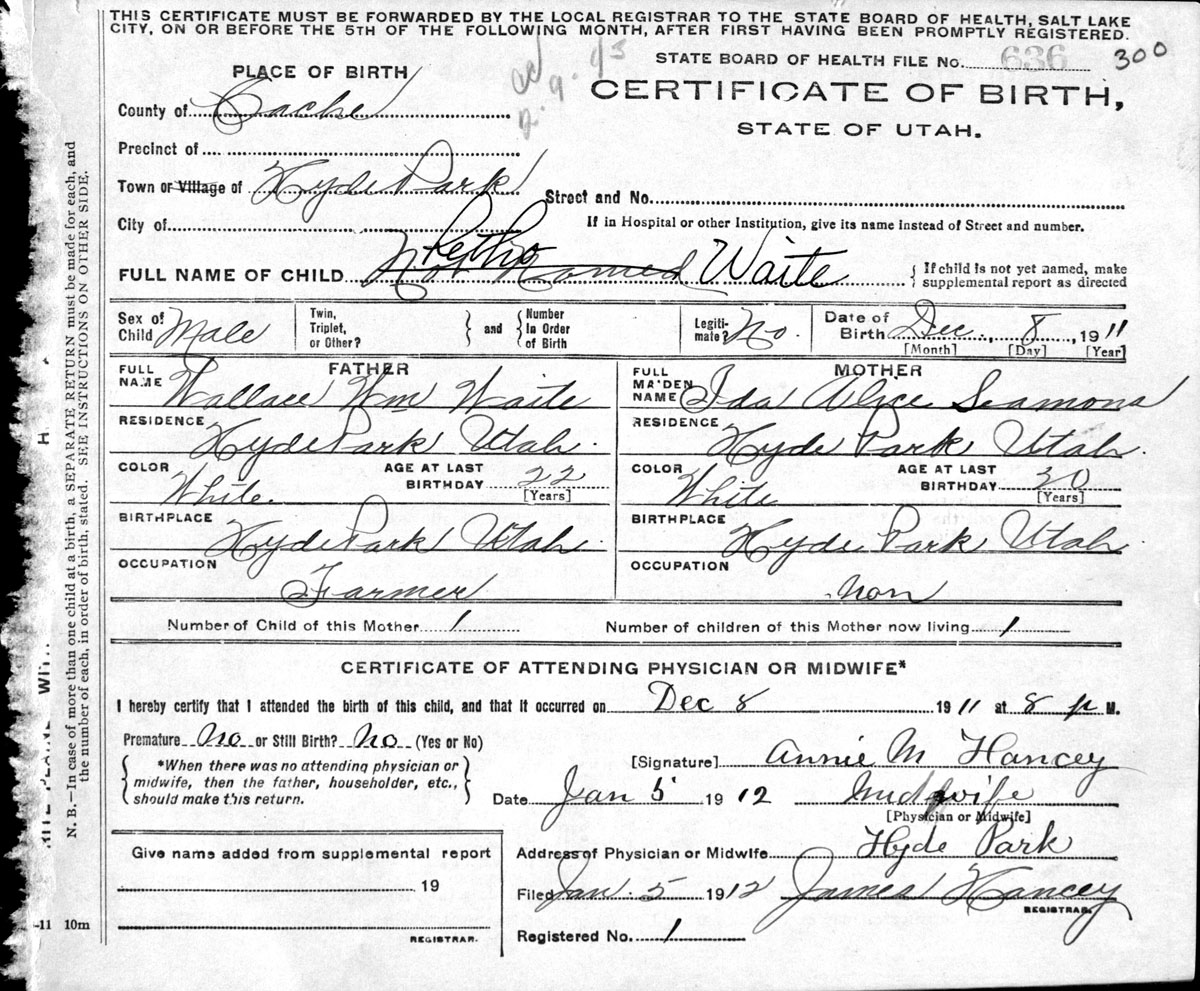 THIS CERTIFICATE MUST BE FORWARDED BY THE LOCAL REGISTRAR TO THE STATE BOARD OF HEALTH, SALT LAKE
CITY, ON OR BEFORE THE 5TH OF THE FOLLOWING MONTH, AFTER FIRST HAVING BEEN PROMPTLY REGISTERED.
STATE BOARD OF HEALTH FILE No. 636 300
PLACE OF BIRTH
CERTIFICATE OF BIRTH,
County of Cache
STATE OF UTAH.
Precinct of
Town or Village of Hyde Park
Street and No.
City of
If in Hospital or other Institution, give its name instead of Street and number.
FULL NAME OF CHILD Not Named Waite
If child is not yet named, make
supplemental report as directed
Sex of Child Male
Twin, Triplet, or Other?
and
Number In Order of Birth
Legiti-mate? No.
Date of Birth Dec. 8, 1911
[Month] [Day] [Year]
FATHER
FULL NAME Wallace Wm Waite
RESIDENCE Hyde Park Utah.
COLOR White. AGE AT LAST BIRTHDAY 22 [Years]
BIRTHPLACE Hyde Park Utah.
OCCUPATION Farmer
MOTHER
FULL MAIDEN NAME Ida Alice Seamons
RESIDENCE Hyde Park Utah.
COLOR White AGE AT LAST BIRTHDAY 20 [Years]
BIRTHPLACE Hyde Park Utah
OCCUPATION non
Number of Child of this Mother 1 Number of children of this Mother now living 1
CERTIFICATE OF ATTENDING PHYSICIAN OR MIDWIFE*
I hereby certify that I attended the birth of this child, and that it occurred on Dec 8 1911 at 8 p M.
Premature No or Still Birth? No (Yes or No)
*When there was no attending physician or
midwife, then the father, householder, etc.,
should make this return.
[Signature] Annie M Hancey
Date Jan 5 1912 Midwife
[Physician or Midwife]
Give name added from supplemental report
19
REGISTRAR.
Address of Physician or Midwife Hyde Park
Filed Jan. 5 1912 James Hancey
REGISTRAR.
Registered No. 1
N. B.—In case of more than one child at a birth, a SEPARATE RETURN must be made for each, and
the number of each, in order of birth, stated. SEE INSTRUCTIONS ON OTHER SIDE.
-11 10m